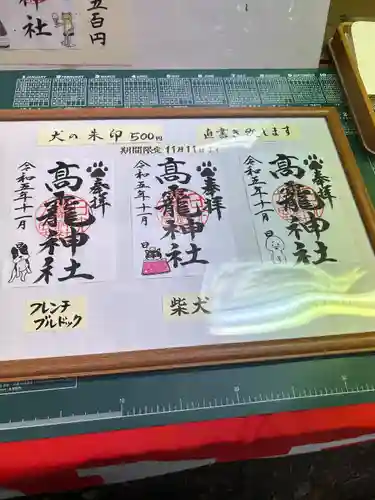 神社
五百円
犬の朱印 500円
直書き致します
期間限定 11月11日~
奉拝
高龗神社
令和五年十一月 日
奉拝
高龗神社
令和五年十一月 日
奉拝
高龗神社
令和五年十一月 日
フレンチ
ブルドック
柴犬